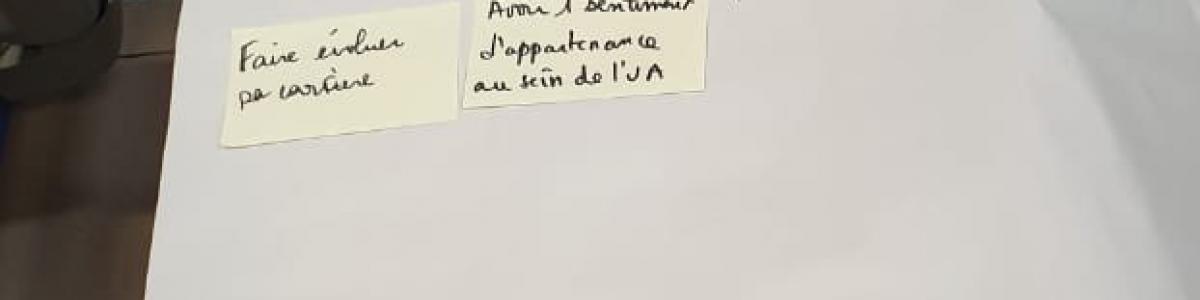 Faire évoluer
sa carrière
Avoir 1 sentiment
d'appartenance
au sein de l'UA